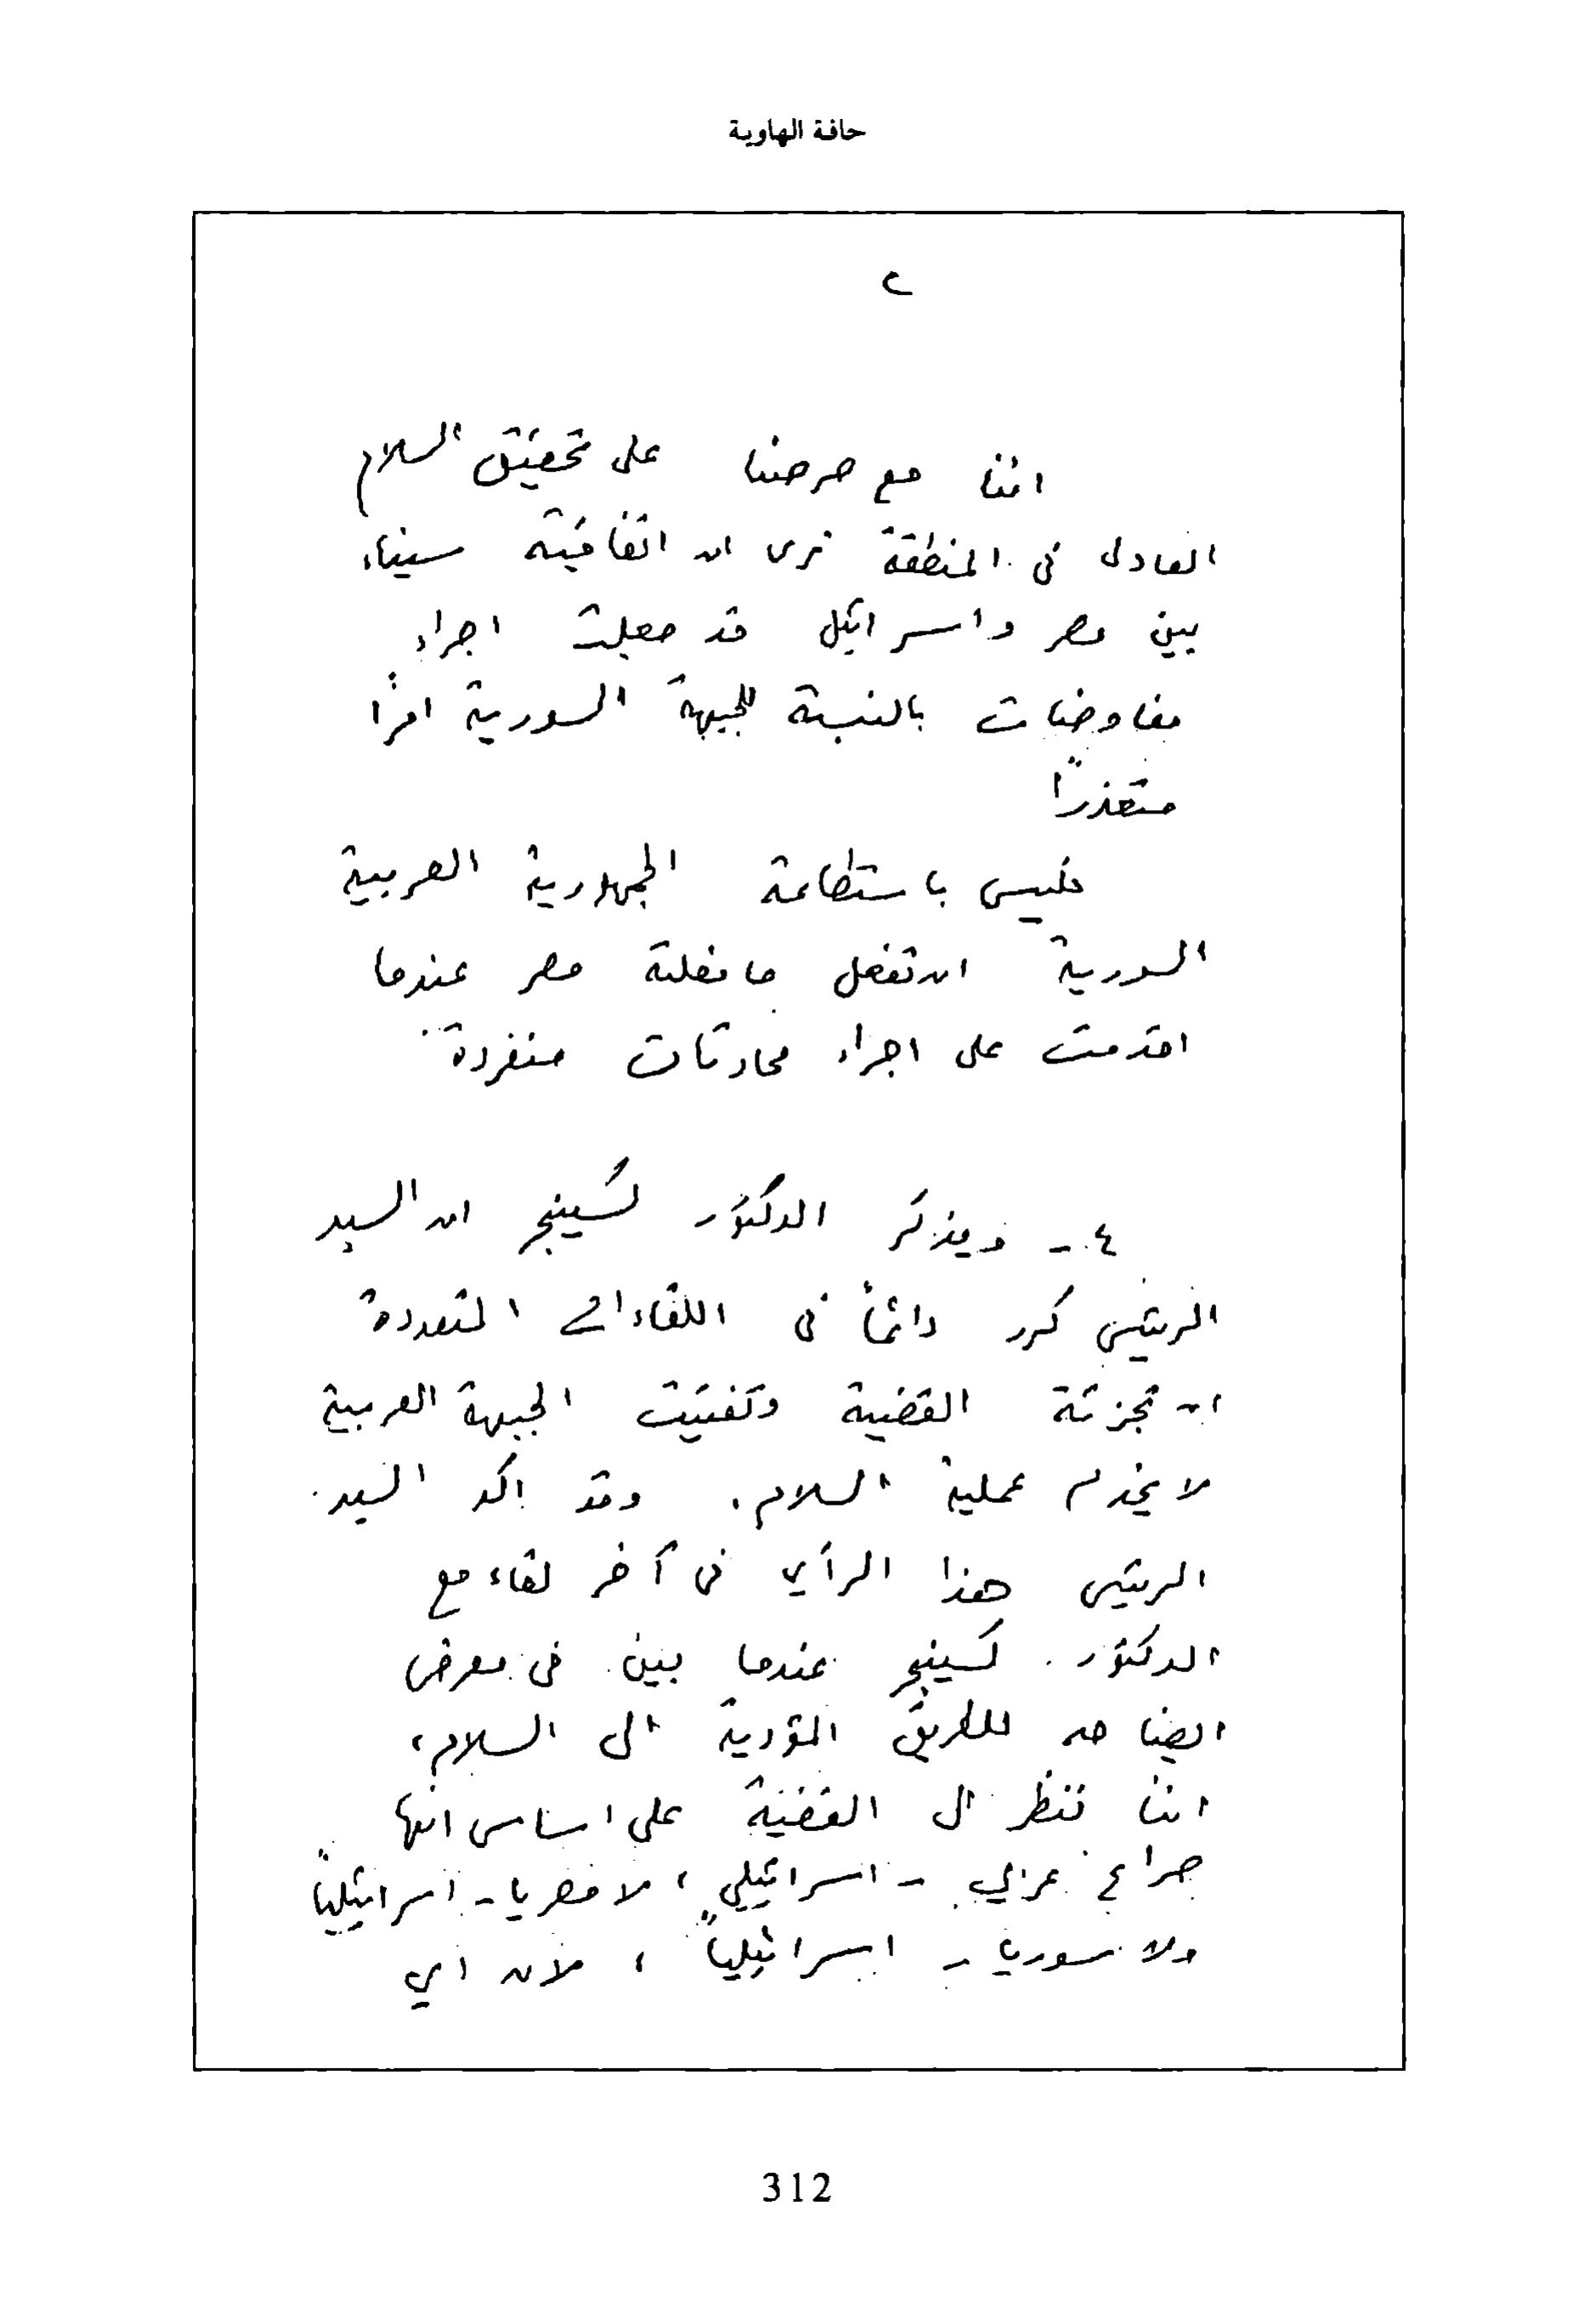 حافة الهاوية
٢
اننا مع حرصنا على تحقيق السلام
العادل في المنطقة نرى ان اتفاقية سيناء
بين مصر واسرائيل قد جعلت اجراء
مفاوضات بالنسبة للجبهة السورية امراً
متعذراً
فليس باستطاعة الجمهورية العربية
السورية ان تفعل ما فعلته مصر عندما
اقدمت على اجراء محادثات منفردة
٤ - ويذكر الدكتور كسينجر ان السيد
الرئيس كرر دائماً في اللقاءات المتعددة
ان تجزئة القضية وتفتيت الجبهة العربية
لا يخدم عملية السلام. وقد اكد السيد
الرئيس هذا الرأي في آخر لقاء مع
الدكتور كسينجر عندما بين في معرض
ايضاحه للطريق المؤدية الى السلام،
اننا ننظر الى القضية على اساس انها
صراع عربي - اسرائيلي، لا مصريا - اسرائيلياً
ولا سوريا - اسرائيلياً، لان اي
312